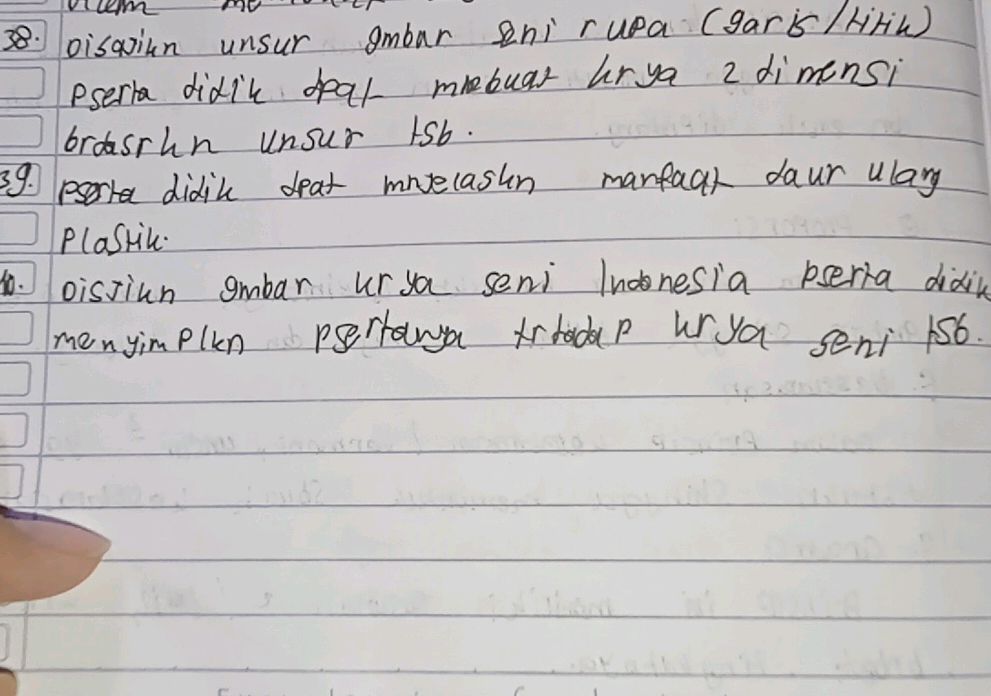 38. Disajikn unsur gmbar seni rupa (garis/titik)
Pserta didik dpat mmebuat krya 2 dimensi
brdasrkn unsur tsb.
39. pserta didik dpat mnjelaskn manfaat daur ulang
Plastik.
40. Disjikn gmbar krya seni Indonesia pserta didik
menyimplkn psertanya trhadap krya seni tsb.